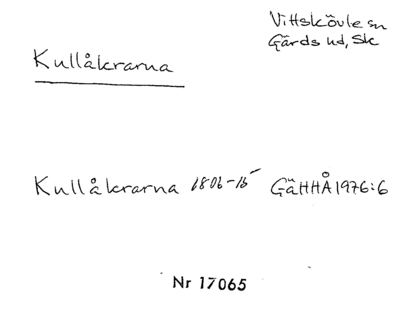 Vittskövle sn
Gärds hd, Sk
Kullåkrarna
Kullåkrarna 1806-15 GäHHÅ 1976:6
Nr 17065